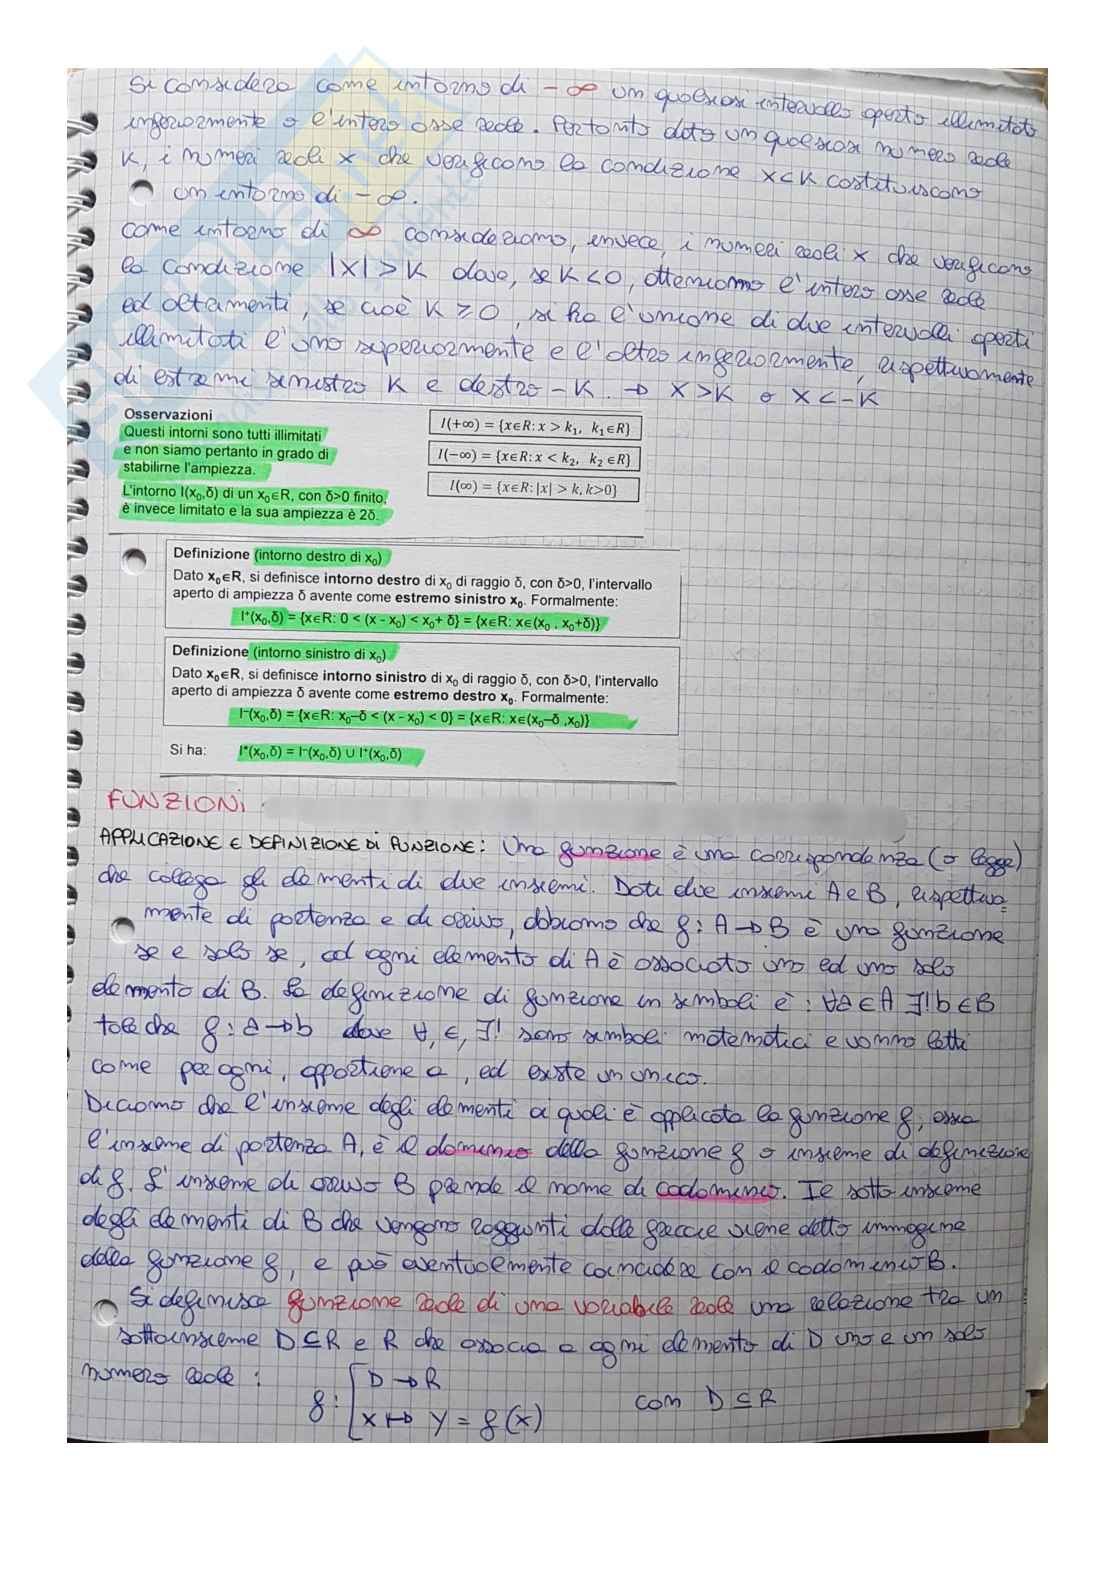 Si considera come intorno di -∞ un qualsiasi intervallo aperto illimitato
inferiormente o l'intero asse reale. Pertanto dato un qualsiasi numero reale
K, i numeri reali x che verificano la condizione x<K costituiscono
un intorno di -∞.
come intorno di ∞ consideriamo, invece, i numeri reali x che verificano
la condizione |x|>K dove, se K<0, otteniamo l'intero asse reale
ed altrimenti, se cioè K≥0, si ha l'unione di due intervalli aperti
illimitati l'uno superiormente e l'altro inferiormente, rispettivamente
di estremi sinistro K e destro -K. → x>K o x<-K
Osservazioni
Questi intorni sono tutti illimitati
e non siamo pertanto in grado di
stabilirne l'ampiezza.
L'intorno I(x₀,δ) di un x₀∈R, con δ>0 finito,
è invece limitato e la sua ampiezza è 2δ.
I(+∞) = {x∈R: x > k₁, k₁∈R}
I(−∞) = {x∈R: x < k₂, k₂∈R}
I(∞) = {x∈R: |x| > k, k>0}
Definizione (intorno destro di x₀)
Dato x₀∈R, si definisce intorno destro di x₀ di raggio δ, con δ>0, l'intervallo
aperto di ampiezza δ avente come estremo sinistro x₀. Formalmente:
I⁺(x₀,δ) = {x∈R: 0 < (x - x₀) < x₀+ δ} = {x∈R: x∈(x₀ , x₀+δ)}
Definizione (intorno sinistro di x₀)
Dato x₀∈R, si definisce intorno sinistro di x₀ di raggio δ, con δ>0, l'intervallo
aperto di ampiezza δ avente come estremo destro x₀. Formalmente:
I⁻(x₀,δ) = {x∈R: x₀–δ < (x - x₀) < 0} = {x∈R: x∈(x₀–δ ,x₀)}
Si ha: I*(x₀,δ) = I⁻(x₀,δ) ∪ I⁺(x₀,δ)
FUNZIONI
APPLICAZIONE E DEFINIZIONE DI FUNZIONE: Una funzione è una corrispondenza (o legge)
che collega gli elementi di due insiemi. Dati due insiemi A e B, rispettiva-
mente di partenza e di arrivo, dobbiamo che f: A→B è una funzione
se e solo se, ad ogni elemento di A è associato uno ed uno solo
elemento di B. La definizione di funzione in simboli è: ∀a∈A ∃!b∈B
tale che f: a→b dove ∀, ∈, ∃! sono simboli matematici e vanno letti
come per ogni, appartiene a, ed esiste un unico.
Diciamo che l'insieme degli elementi ai quali è applicata la funzione f, ossia
l'insieme di partenza A, è il dominio della funzione f o insieme di definizione
di f. L'insieme di arrivo B prende il nome di codominio. Il sotto insieme
degli elementi di B che vengono raggiunti dalle freccie viene detto immagine
della funzione f, e può eventualmente coincidere con il codominio B.
Si definisce funzione reale di una variabile reale una relazione tra un
sottoinsieme D⊆R e R che associa a ogni elemento di D uno e un solo
numero reale:
f: [D→R
x↦ y = f(x) con D⊆R